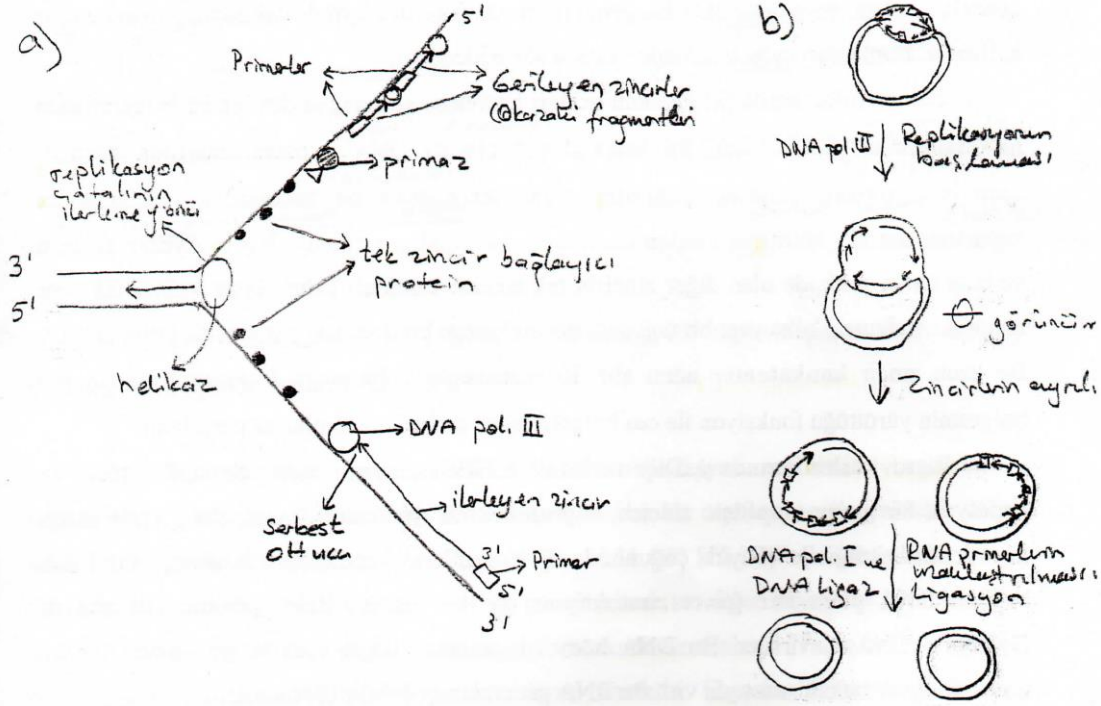 a)
5'
Primerler
Gerileyen zincirler
(Okazaki fragmentleri
primaz
replikasyon
çatalının
ilerleme yönü
3'
5'
tek zincir bağlayıcı
protein
helikaz
DNA pol. III
ilerleyen zincir
Serbest
3'-OH ucu
3'
Primer
5'
3'
b)
DNA pol III
Replikasyonun
başlaması
θ görünüm
Zincirlerin ayrılı
DNA pol I ve
DNA ligaz
RNA primerlerin
Ligasyon